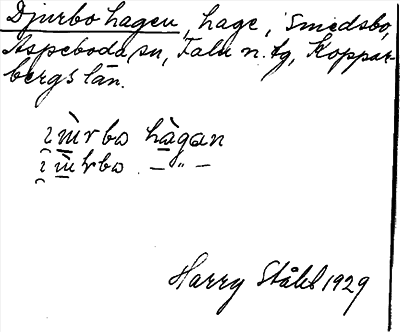 Djurbo hagen, hage, Smedsbo,
Aspeboda sn, Falu n. tg, Koppar-
bergs län.
i̯ɯ̀rbo hàgan
i̯ɯ̀rbo — " —
Harry Ståhl 1929